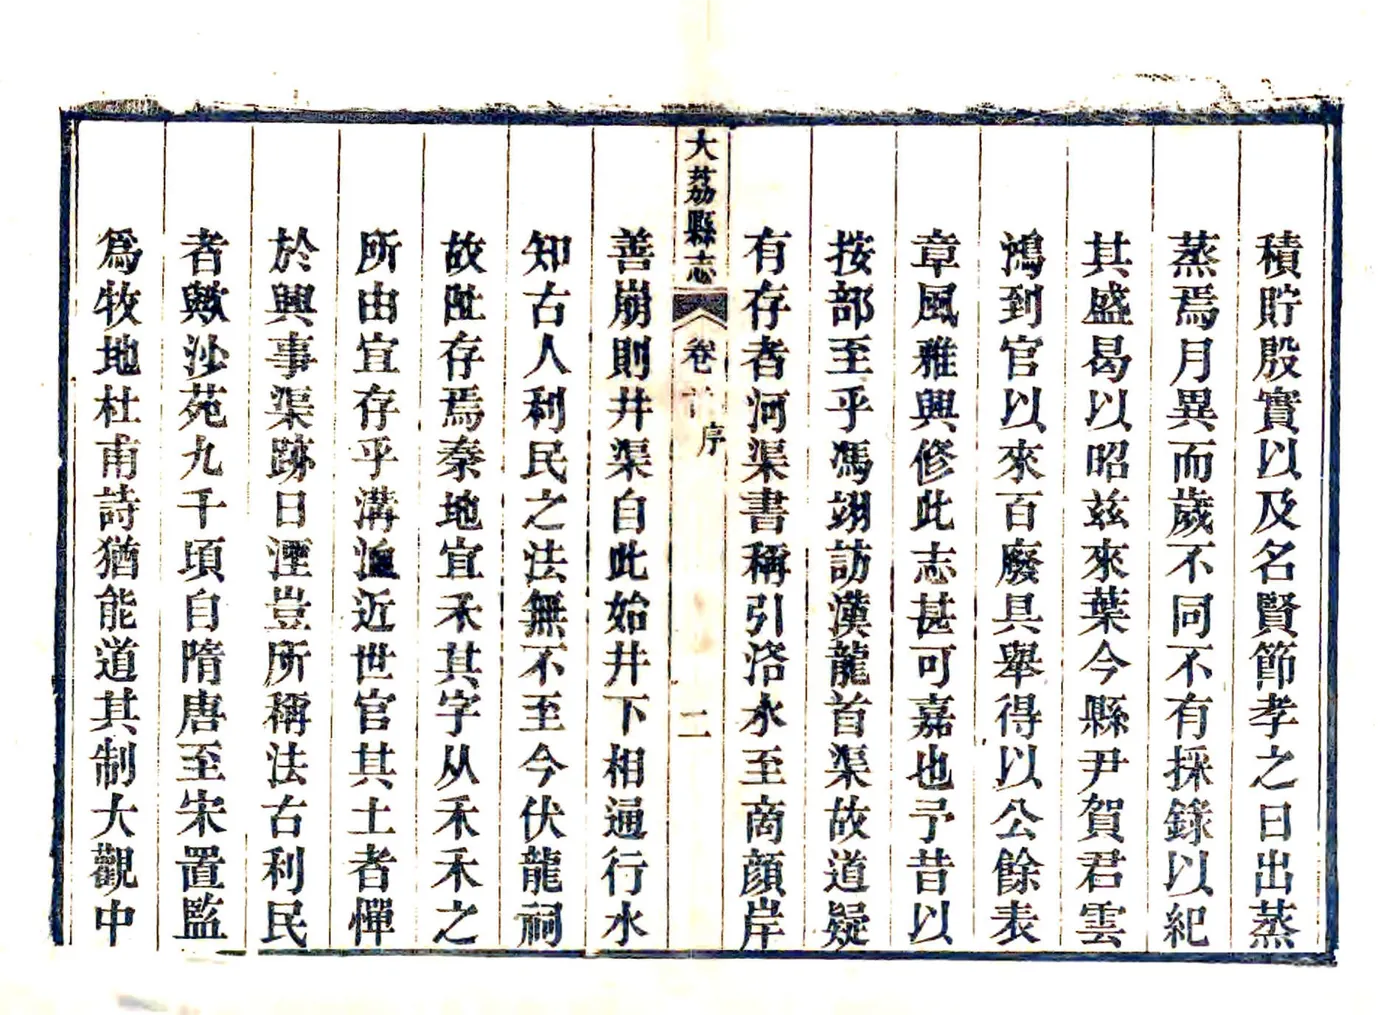 積貯殷實以及名賢節孝之日出蒸
蒸焉月異而歲不同不有採錄以紀
其盛曷以昭茲來葉今縣尹賀君雲
鴻到官以來百廢具舉得以公餘表
章風雅興修此志甚可嘉也予昔以
按部至乎馮翊訪漢龍首渠故道疑
有存者河渠書稱引洛水至商顏岸
大荔縣志 卷首 序 二
善崩則井渠自此始井下相通行水
知古人利民之法無不至今伏龍祠
故阯存焉秦地宜禾其字从禾禾之
所由宜存乎溝洫近世官其土者憚
於興事渠跡日湮豈所稱法古利民
者歟沙苑九千頃自隋唐至宋置監
爲牧地杜甫詩猶能道其制大觀中